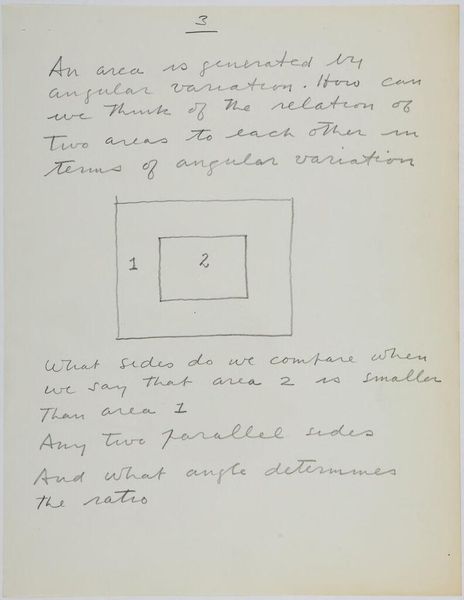 3
An area is generated by
angular variation. How can
we think of the relation of
two areas to each other in
terms of angular variation
1
2
What sides do we compare when
we say that area 2 is smaller
than area 1
Any two parallel sides
And what angle determines
the ratio